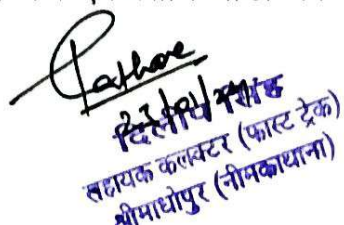 Rathore
23/01/24
सहायक कलक्टर (फास्ट ट्रेक)
श्रीमाधोपुर (नीमकाथाना)